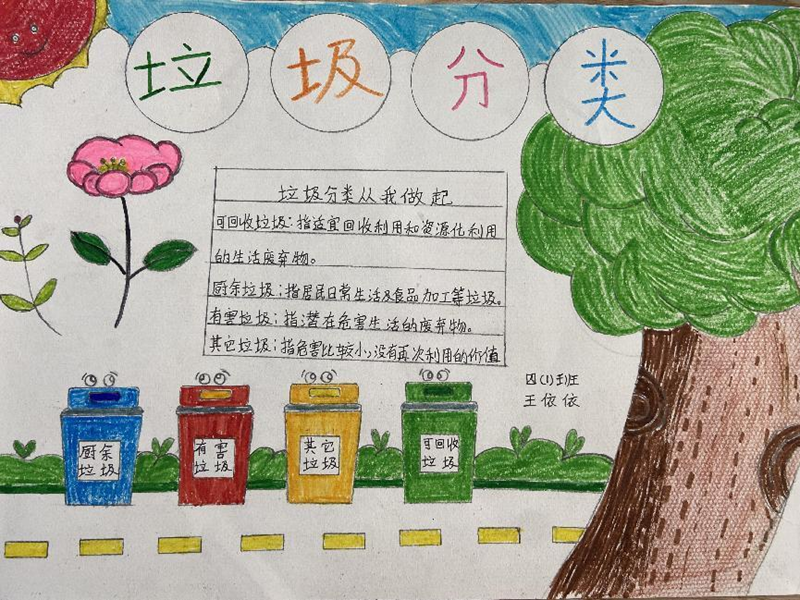 垃圾分类
垃圾分类从我做起
可回收垃圾:指适宜回收利用和资源化利用
的生活废弃物。
厨余垃圾;指居民日常生活及食品加工等垃圾。
有害垃圾;指潜在危害生活的废弃物。
其它垃圾;指危害比较小,没有再次利用的价值
四(1)班
王依依
厨余
垃圾
有害
垃圾
其它
垃圾
可回收
垃圾